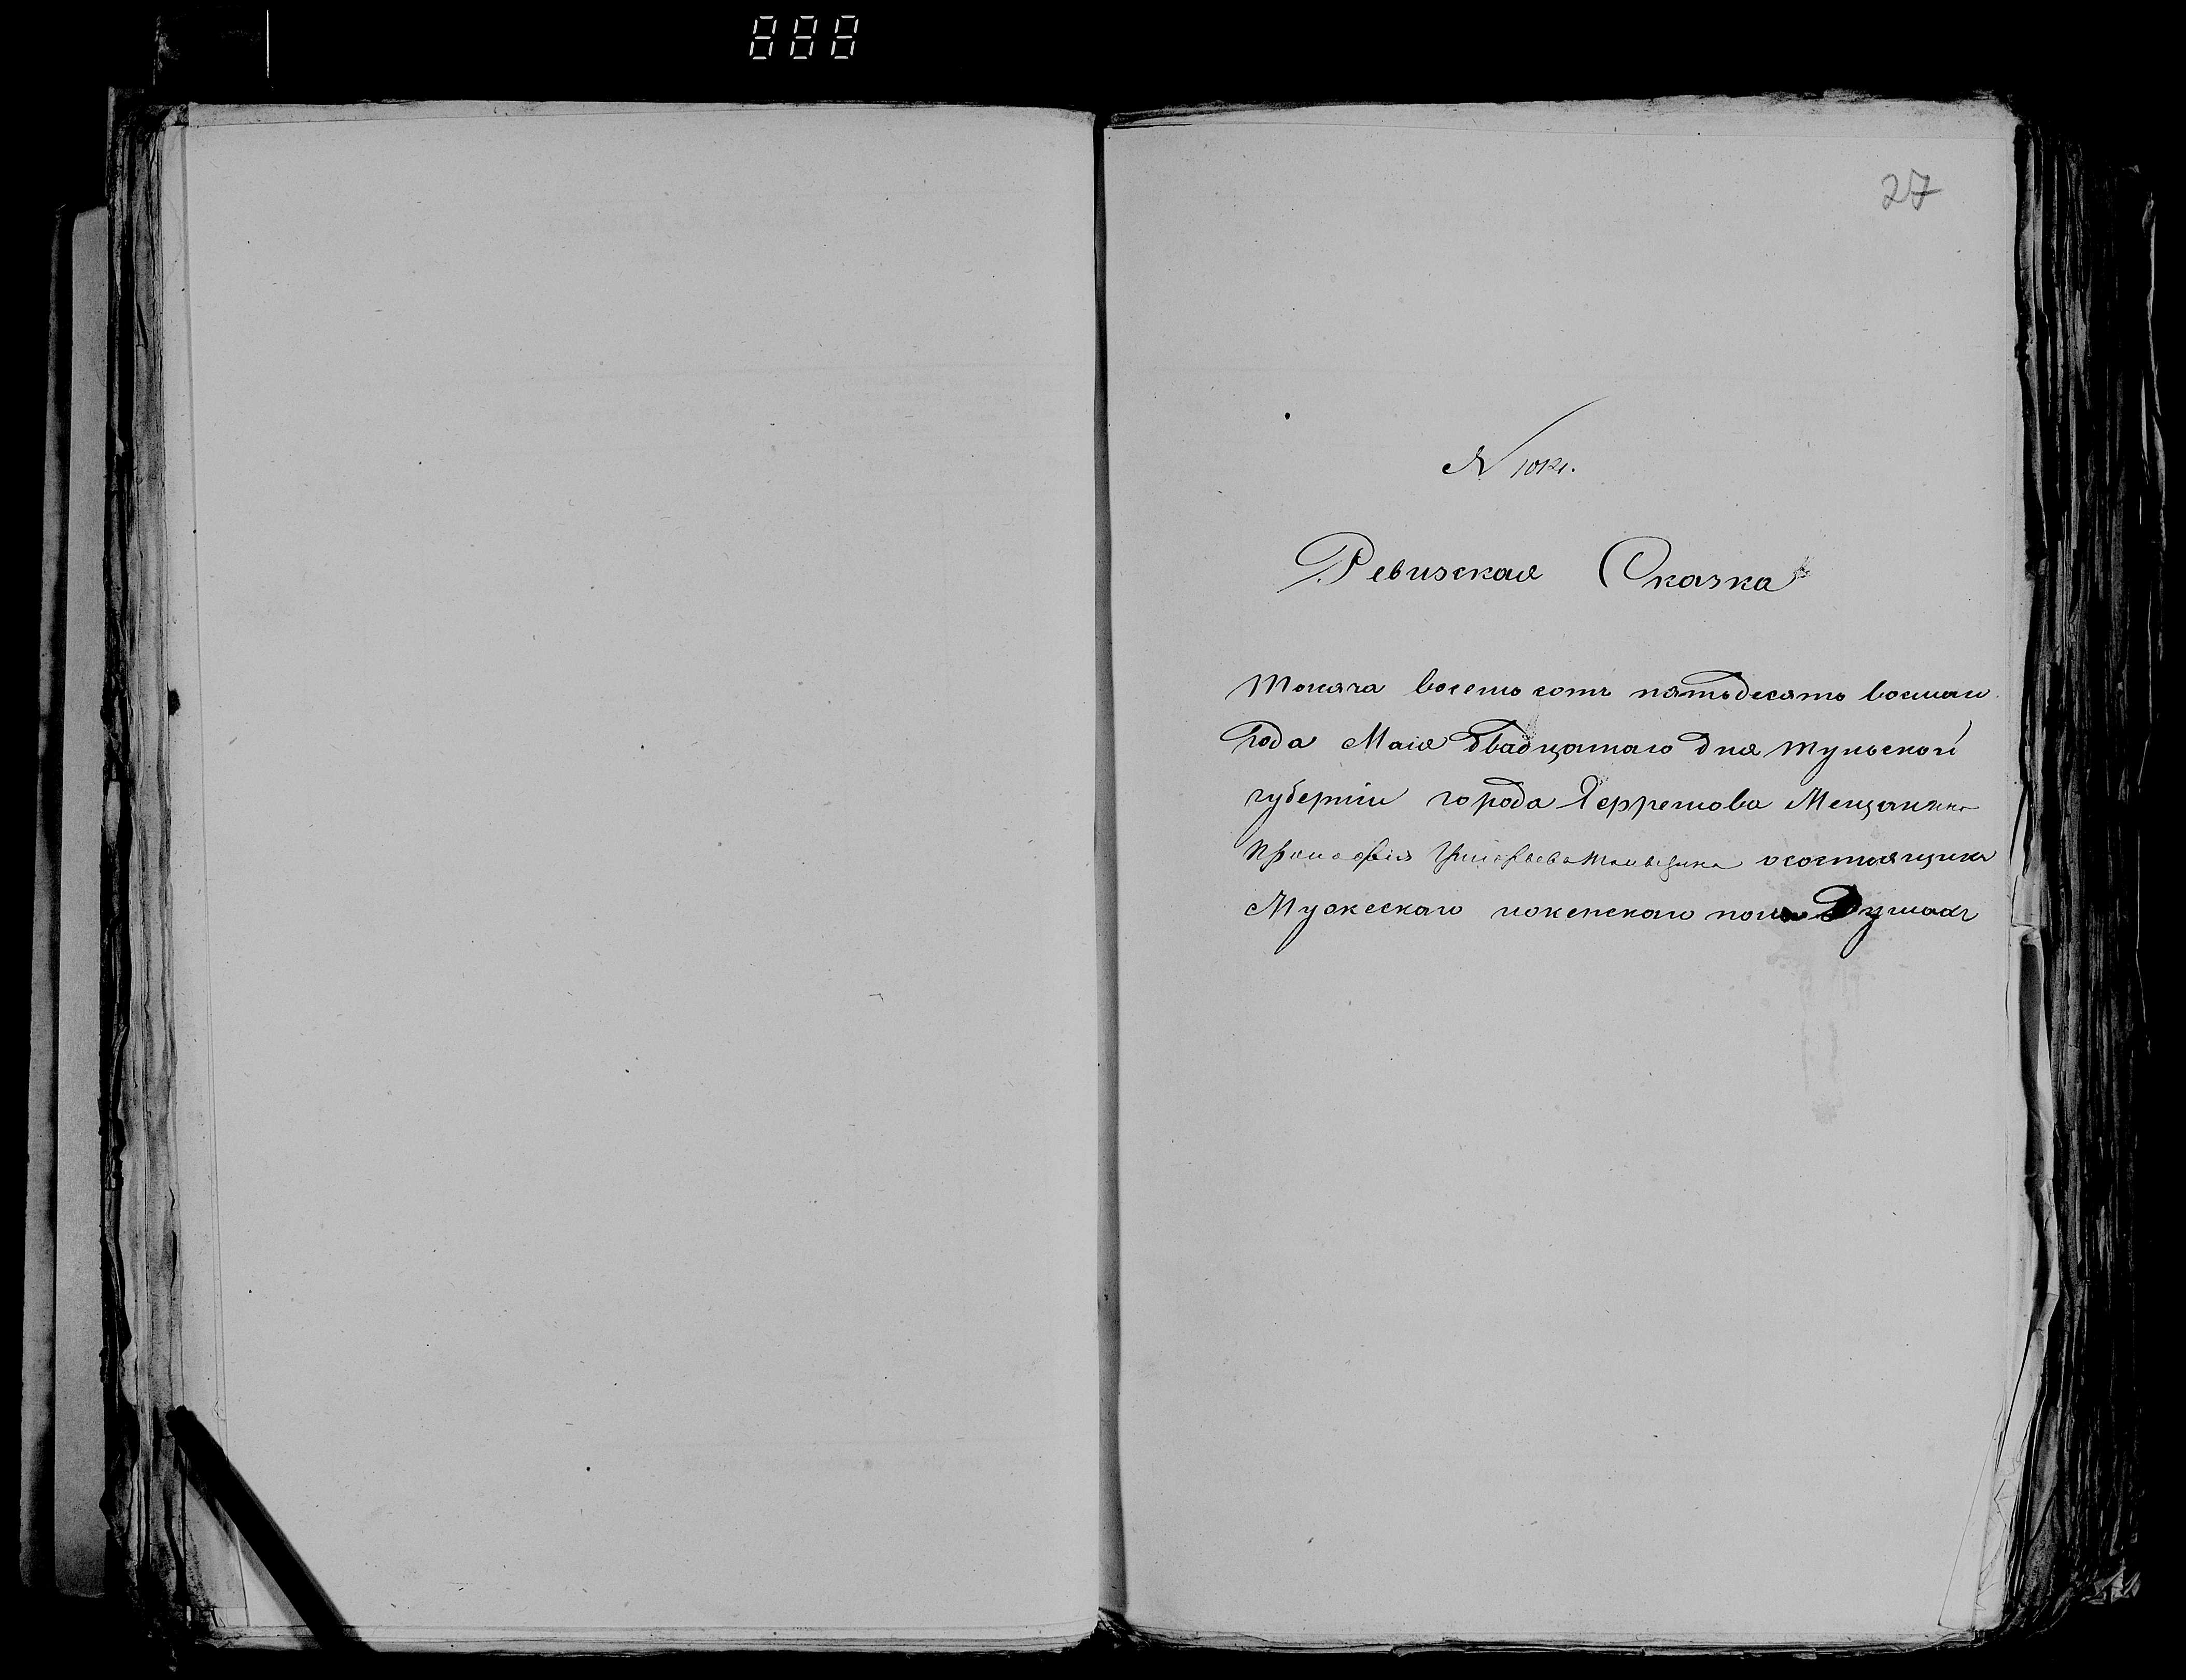 888
27
N 1012.
Ревизская Сказка
Тысяча восемь сотъ пятьдесятъ восмаго
года Маія двадцатаго дня Тульской
губерніи города Ефремова Мещанина
осостоящихъ
Мужескаго и женскаго пола Душахъ